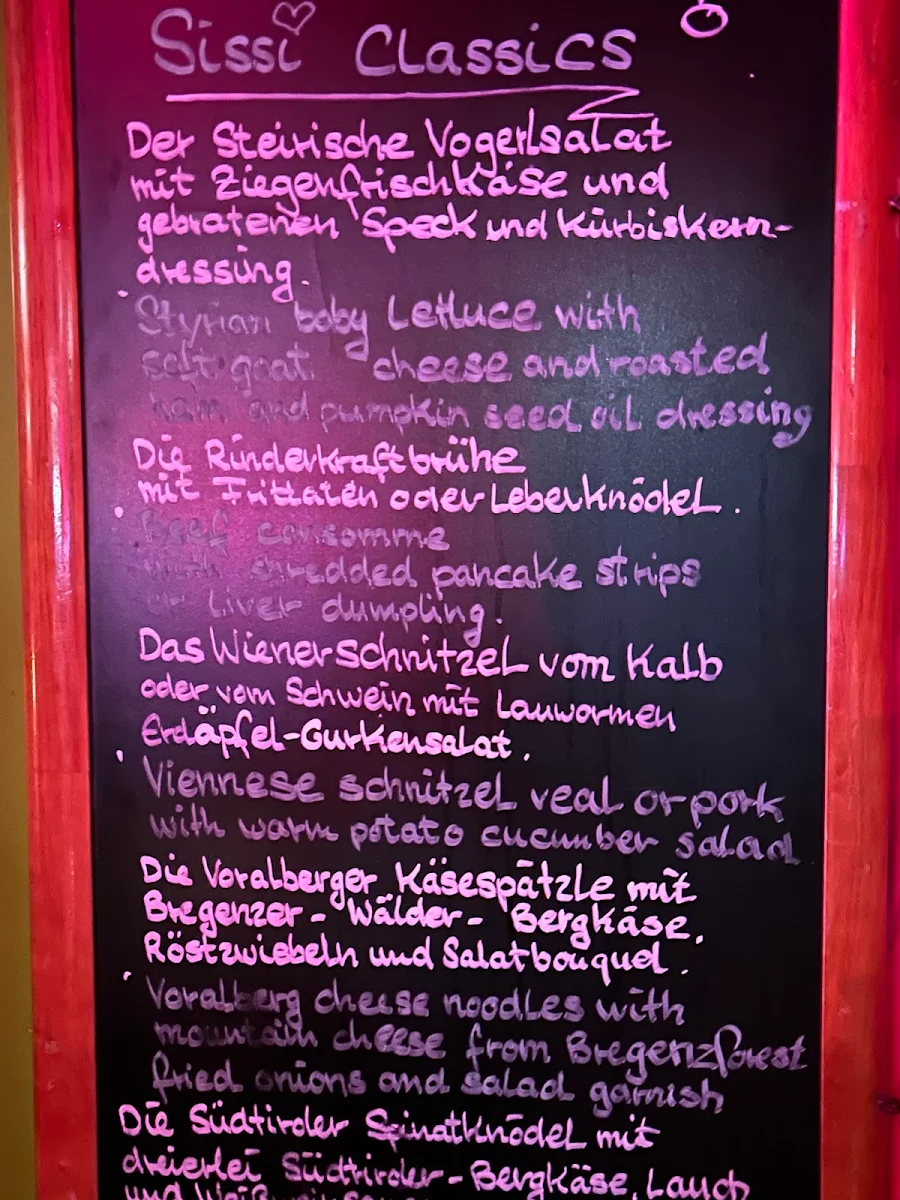 Sissi Classics
Der Steirische Vogerlsalat
mit Ziegenfrischkäse und
gebratenen Speck und Kürbiskern-
dressing.
Styrian baby lettuce with
soft goat cheese and roasted
ham and pumpkin seed oil dressing
Die Rinderkraftbrühe
mit Frittaten oder Leberknödel.
Beef consomme
with shredded pancake strips
or liver dumpling.
Das Wienerschnitzel vom Kalb
oder vom Schwein mit lauwarmen
Erdäpfel-Gurkensalat.
Viennese schnitzel veal or pork
with warm potato cucumber salad
Die Voralberger Käsespätzle mit
Bregenzer-Wälder-Bergkäse,
Röstzwiebeln und Salatbouquet.
Voralberg cheese noodles with
mountain cheese from Bregenzforest
fried onions and salad garnish
Die Südtiroler Spinatknödel mit
dreierlei Südtiroler-Bergkäse, Lauch
und